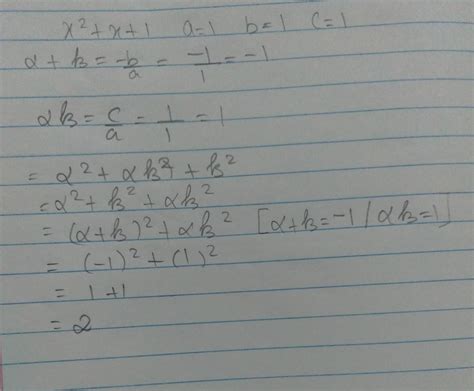 x² + x + 1 a=1 b=1 c=1
α + β = -b/a = -1/1 = -1
αβ = c/a = 1/1 = 1
= α² + αβ² + β²
= α² + β² + αβ²
= (α+β)² + αβ² [α+β=-1/αβ=1]
= (-1)² + (1)²
= 1+1
= 2